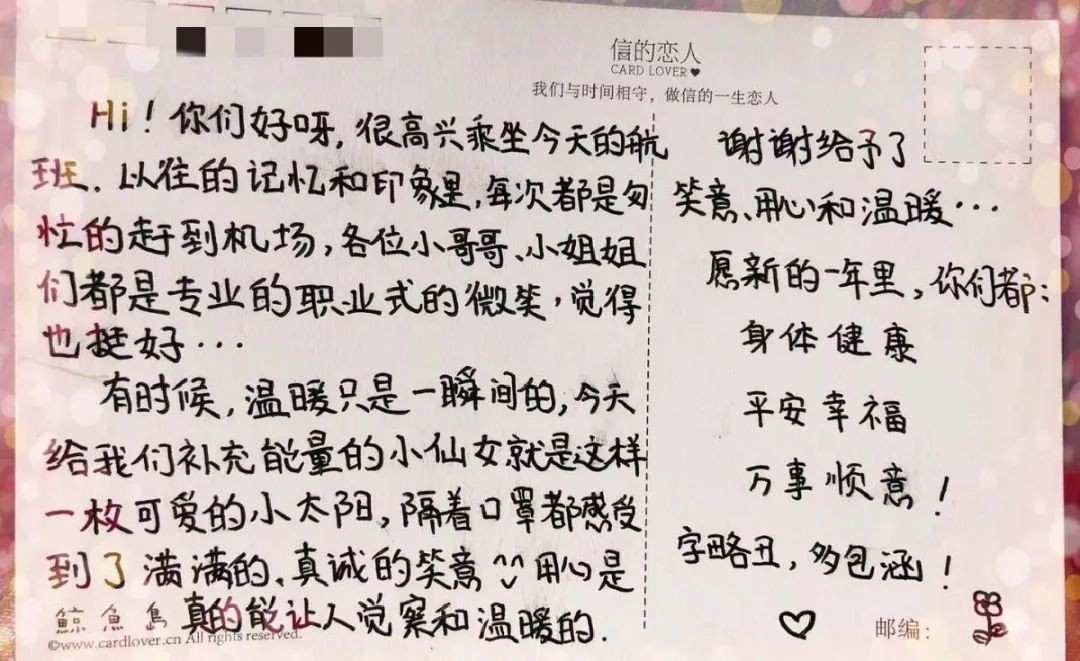 信的恋人
CARD LOVER
我们与时间相守，做信的一生恋人
Hi！你们好呀，很高兴乘坐今天的航
班、以往的记忆和印象里，每次都是匆
忙的赶到机场，各位小哥哥、小姐姐
们都是专业的职业式的微笑，觉得
也挺好···
有时候，温暖只是一瞬间的，今天
给我们补充能量的小仙女就是这样
一枚可爱的小太阳，隔着口罩都感受
到了满满的、真诚的笑意 用心是
真的能让人觉察和温暖的.
谢谢给予了
笑意、用心和温暖···
愿新的一年里，你们都：
身体健康
平安幸福
万事顺意！
字略丑，多包涵！
鲸鱼岛
©www.cardlover.cn All rights reserved.
邮编：